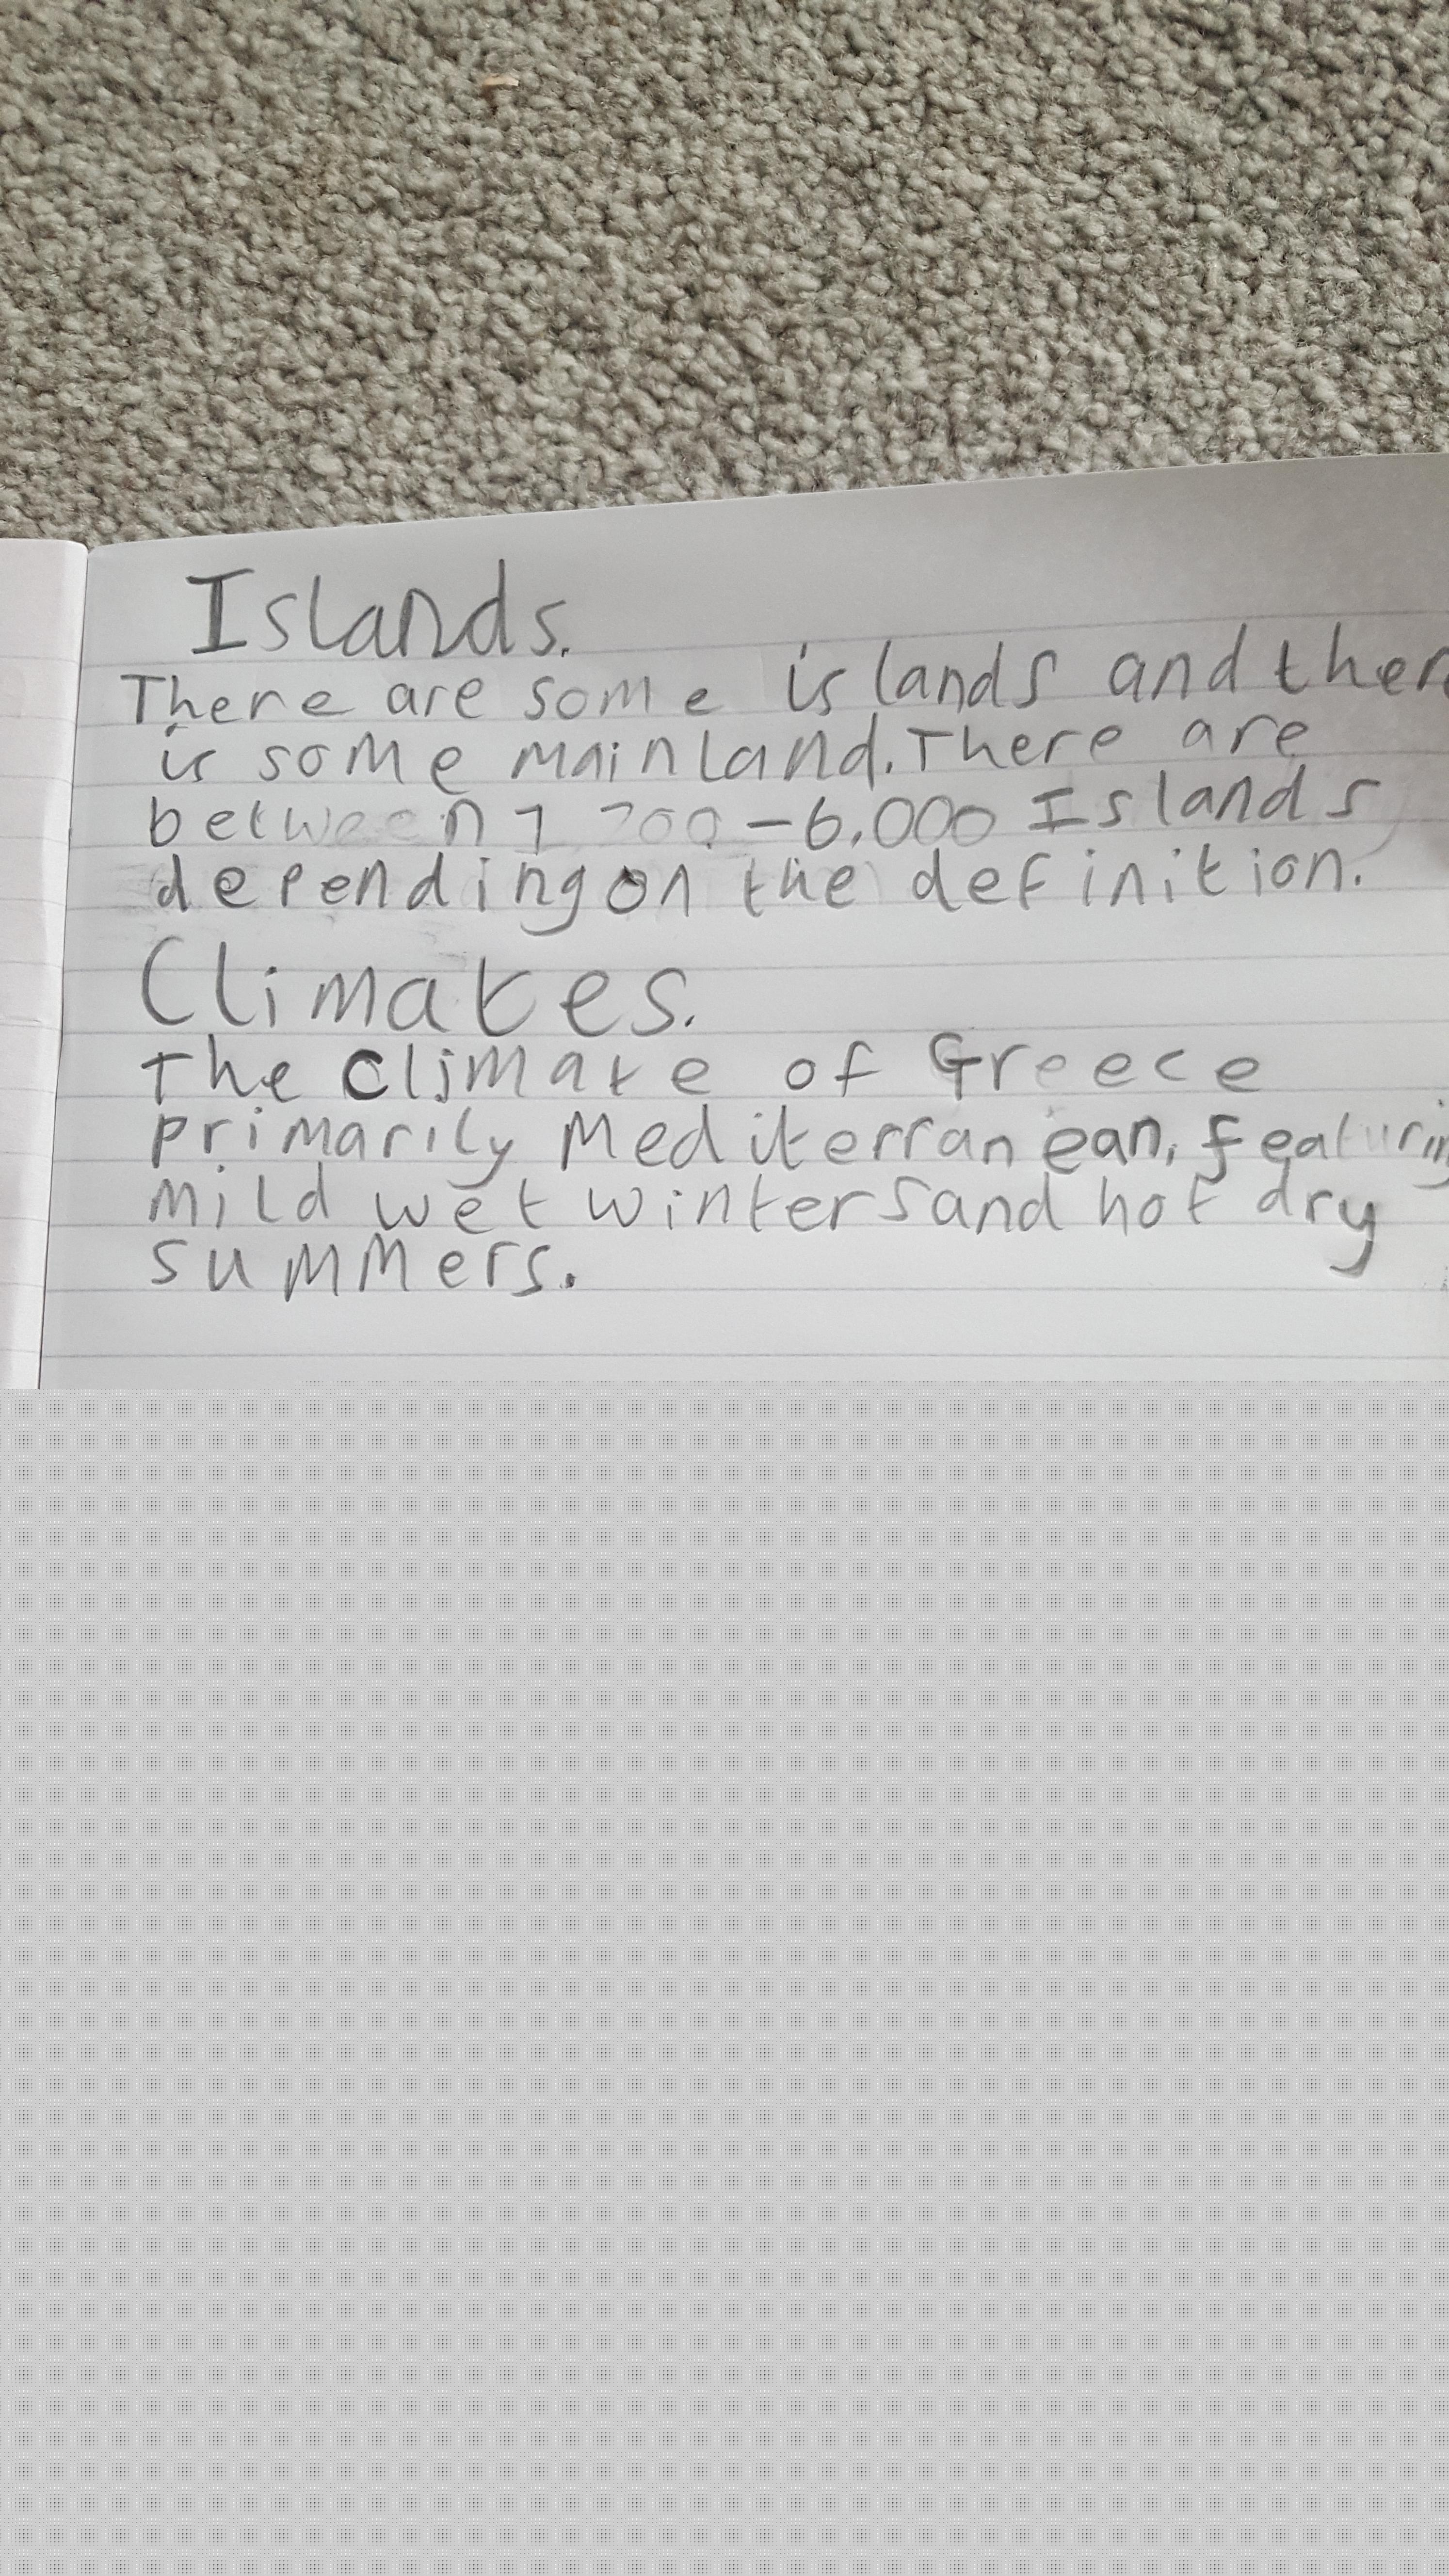 Islands.
There are some islands and there
is some mainland. There are
between 1 200 - 6,000 Islands
depending on the definition.
Climates.
The climate of Greece
primarily Mediterranean, featuring
mild wet winters and hot dry
summers.